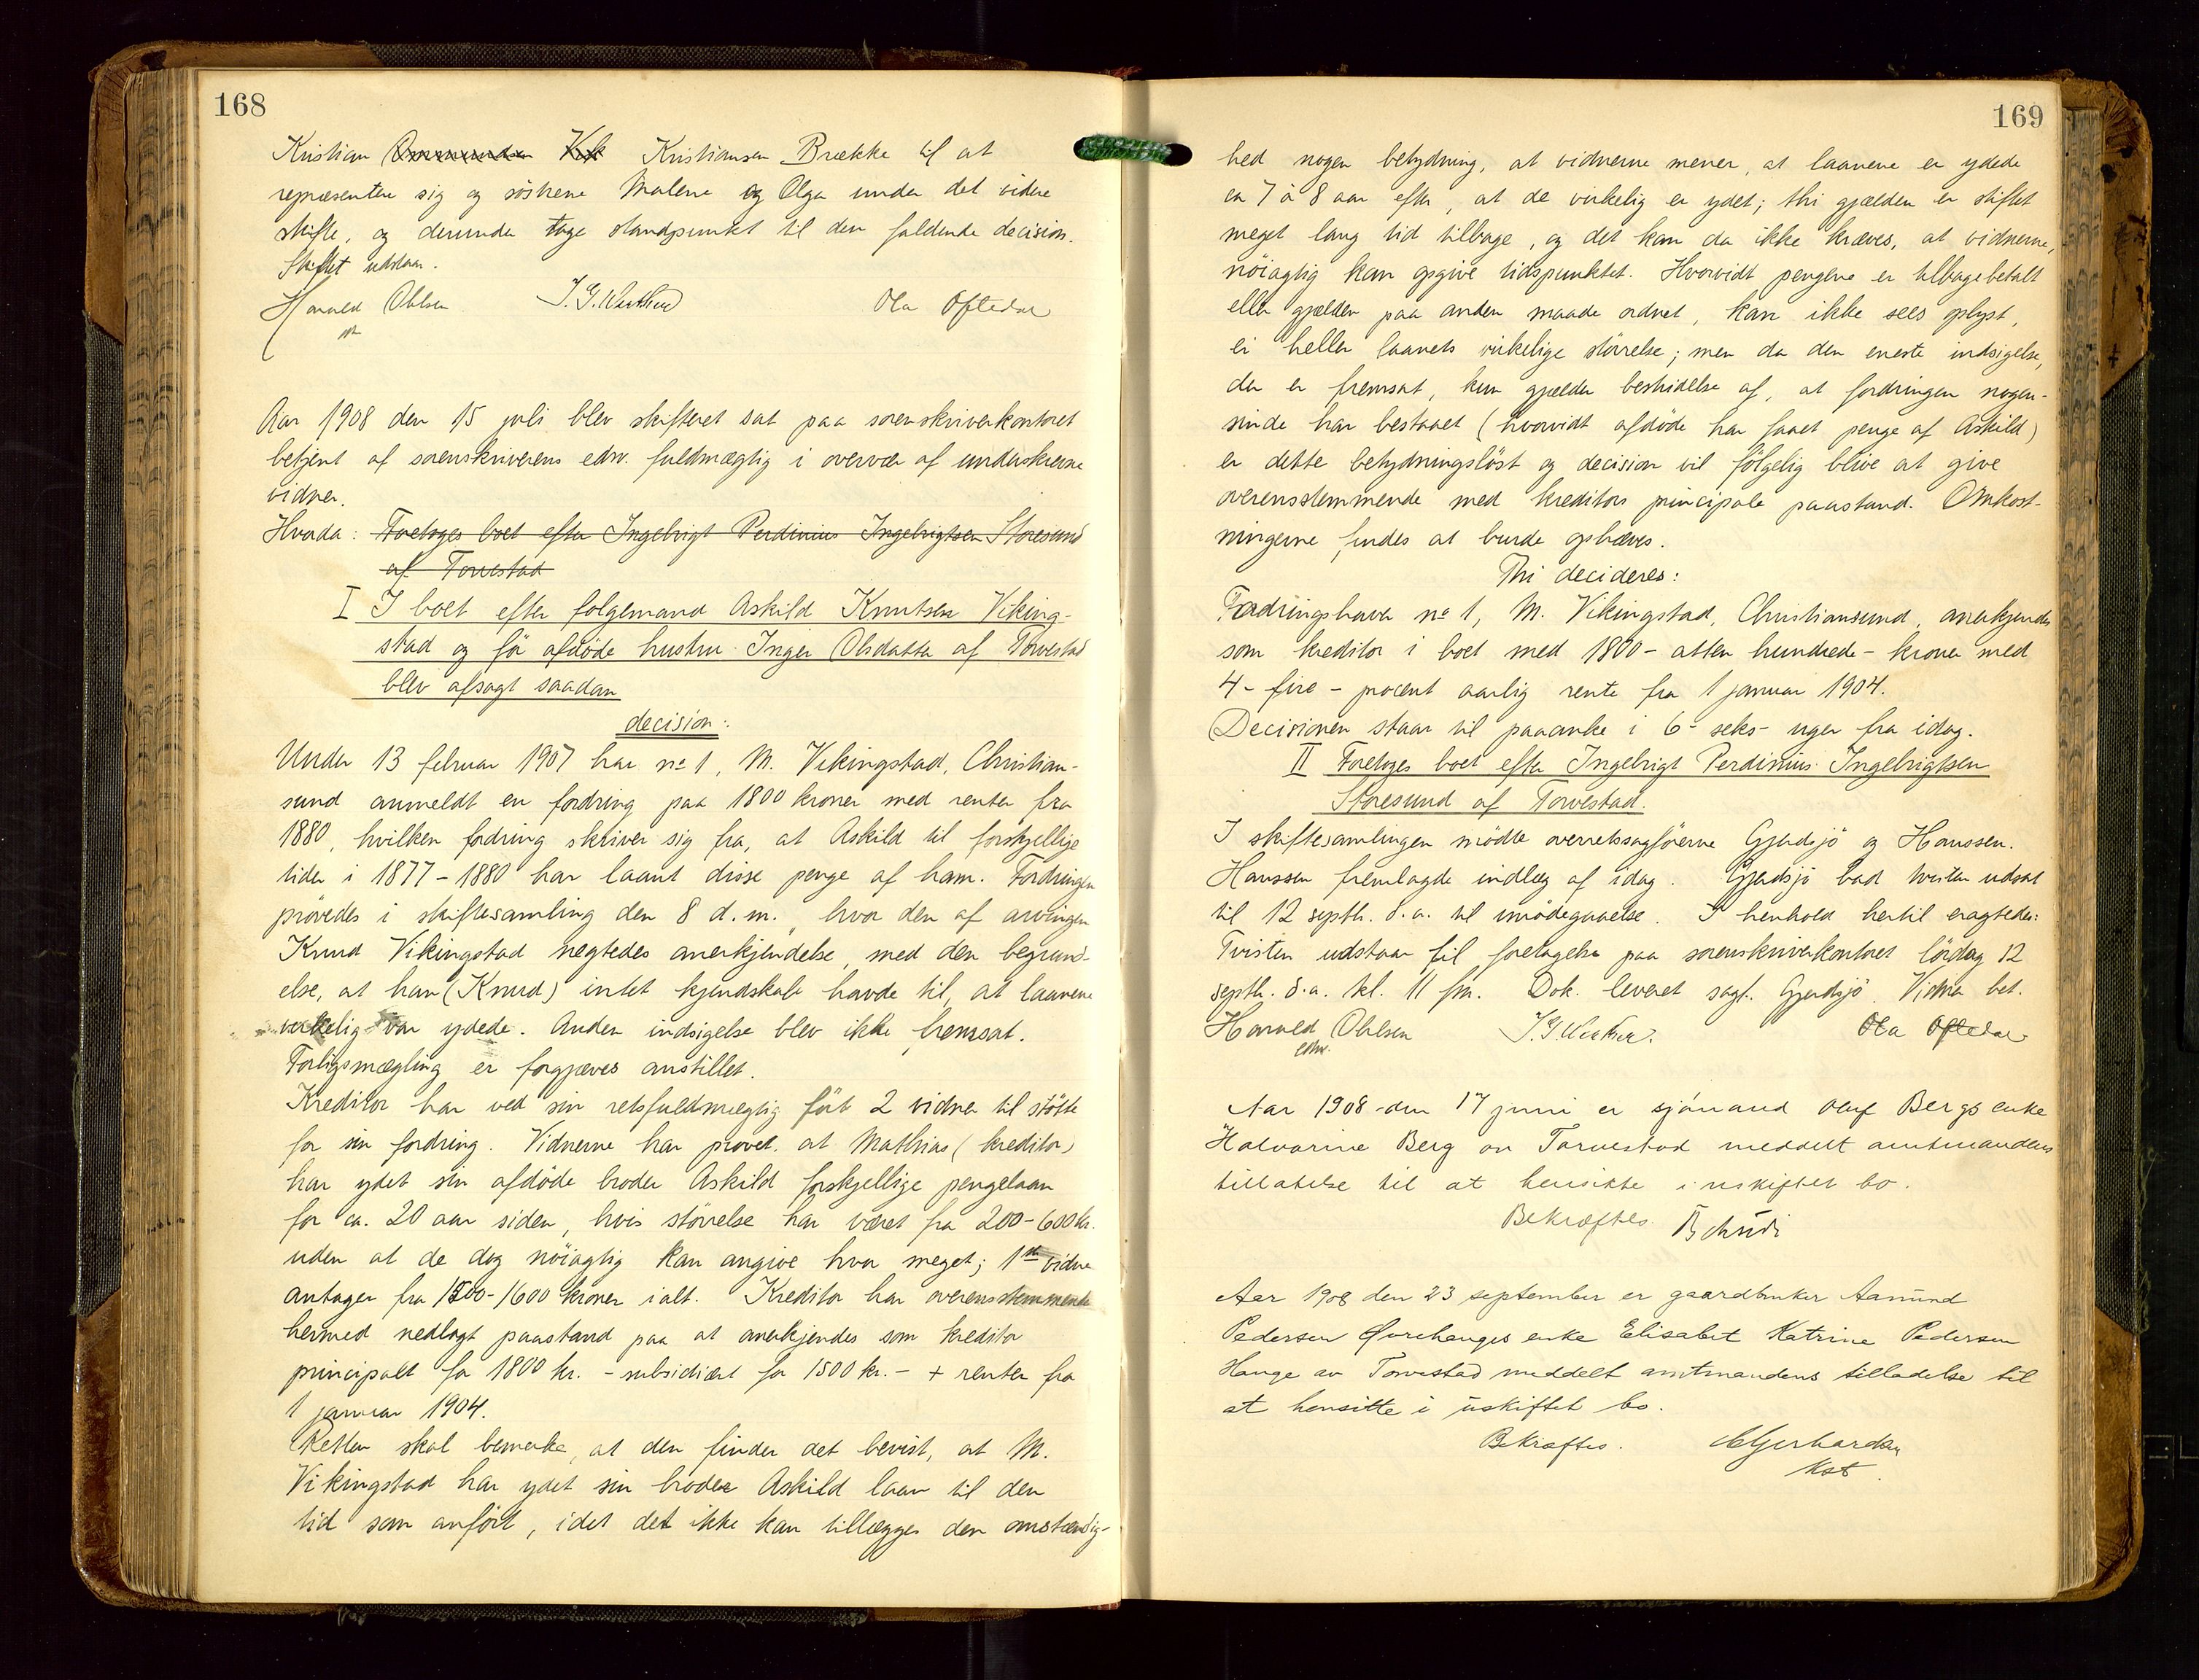 168
Kristian Kristiansen Brække til at
repræsentere sig og søstrene Malene og Olga under det videre
skifte, og derunder tage standpunkt til den faldende decision.
Skiftet udstaar.
Harald Ohlsen Ola Oftedal
Aar 1908 den 15 juli blev skifteret sat paa sorenskriverkontoret
betjent af sorenskriverens edsv. fuldmægtig i overvær af underskrevne
vidner.
Hvorda: Foretoges boet efter Ingebrigt Perdinius Ingebrigtsen Storesund
af Torvestad
I I boet efter følgemand Askild Knutsen Viking-
stad og før afdøde hustru Inger Olsdatter af Torvestad
blev afsagt saadan
decision:
Under 13 februar 1907 har nº 1, M. Vikingstad, Christian-
sund anmeldt en fordring paa 1800 kroner med renter fra
1880, hvilken fordring skriver sig fra, at Askild til forskjellige
tider i 1877-1880 har laant disse penge af ham. Fordringen
prøvedes i skiftesamling den 8 d.m., hvor den af arvingen
Knud Vikingstad nægtedes anerkjendelse, med den begrund-
else, at han (Knud) intet kjendskab havde til, at laanene
virkelig var ydede. Anden indsigelse blev ikke fremsat.
Forligsmægling er forgjæves anstillet.
Kreditor har ved sin retsfuldmægtig ført 2 vidner til støtte
for sin fordring. Vidnerne har provet. at Mathias (kreditor)
har ydet sin afdøde broder Askild forskjellige pengelaan
for ca. 20 aar siden, hvis størrelse har været fra 200-600 kr.
uden at de dog nøiagtig kan angive hvor meget; 1ste vidne
antager fra 1500-1600 kroner ialt. Kreditor har overensstemmende
hermed nedlagt paastand paa at anerkjendes som kreditor
principalt for 1800 kr. - subsidiært for 1500 kr. - + renter fra
1 januar 1904.
Retten skal bemerke, at den finder det bevist, at M.
Vikingstad har ydet sin broder Askild laan til den
tid som anført, idet det ikke kan tillægges den omstændig-
169
hed nogen betydning, at vidnerne mener, at laanene er ydede
ca 7 à 8 aar efter, at de virkelig er ydet; thi gjælden er stiftet
meget lang tid tilbage, og det kan da ikke kræves, at vidnerne,
nøiagtig kan opgive tidspunktet. Hvorvidt pengene er tilbagebetalt
eller gjælden paa anden maade ordnet, kan ikke sees oplyst,
ei heller laanets virkelige størrelse; men da den eneste indsigelse,
der er fremsat, kun gjælder bestridelse af, at fordringen nogen-
sinde har bestaaet (hvorvidt afdøde har faaet penge af Askild)
er dette betydningsløst og decision vil følgelig blive at give
overensstemmende med kreditors principale paastand. Omkost-
ningerne findes at burde ophæves.
Thi decideres:
Fordringshaver nº 1, M. Vikingstad, Christiansund, anerkjendes
som kreditor i boet med 1800 - atten hundrede - kroner med
4 - fire - procent aarlig rente fra 1 januar 1904.
Decisionen staar til paaanke i 6 - seks - uger fra idag.
II Foretoges boet efter Ingebrigt Perdinius Ingebrigtsen
Storesund af Torvestad.
I skiftesamlingen mødte overretssagførerne Gjerdsjø og Hanssen.
Hanssen fremlagde indlæg af idag. Gjerdsjø bad tvisten udsat
til 12 septbr. d.a. til imødegaaelse. I henhold hertil eragtedes:
Tvisten udstaar til foretagelse paa sorenskriverkontoret lørdag 12
septbr. d.a. kl. 11 fm. Dok. leveret sagf. Gjerdsjø. Vidner bet.
Harald Ohlsen Ola Oftedal
edsv.
Aar 1908 den 17 juni er sjømand Oluf Bergs enke
Halvarine Berg av Torvestad meddelt amtmandens
tilladelse til at hensitte i uskiftet bo.
Bekræftes
Aar 1908 den 23 september er gaardbruker Aamund
Pedersen Øvrehauges enke Elisabet Katrine Pedersen
Hauge av Torvestad meddelt amtmandens tilladelse til
at hensitte i uskiftet bo.
Bekræftes. Gerhardsen
kst.